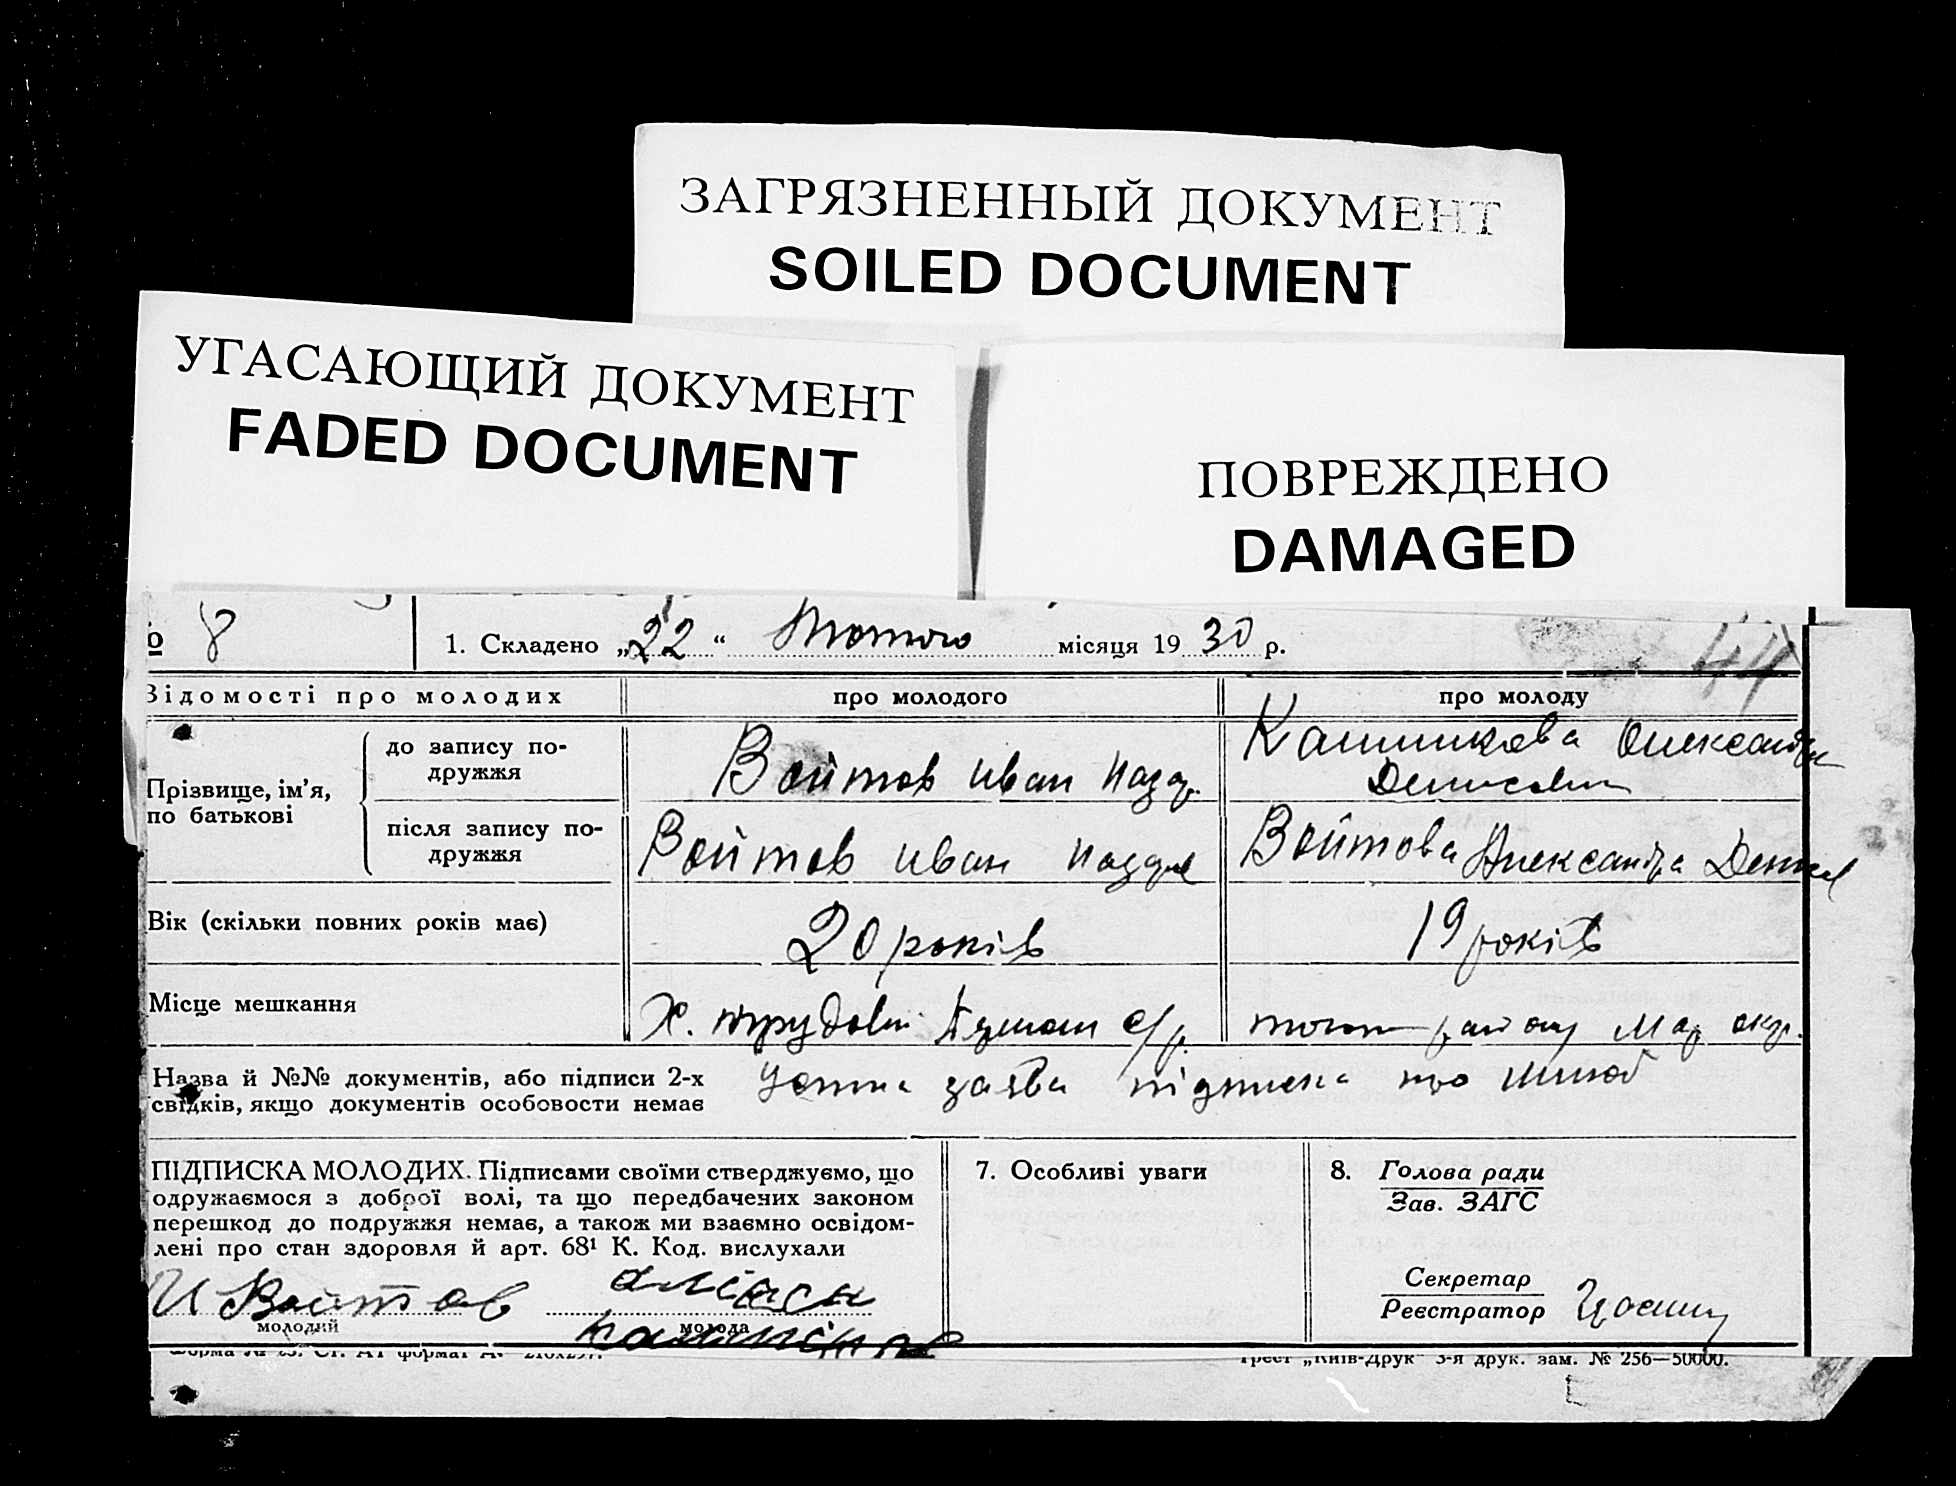 ЗАГРЯЗНЕННЫЙ ДОКУМЕНТ
SOILED DOCUMENT
УГАСАЮЩИЙ ДОКУМЕНТ
FADED DOCUMENT
ПОВРЕЖДЕНО
DAMAGED
8
1. Складено „22“ Лютого місяця 1930 р.
44
Відомості про молодих
про молодого
про молоду
Прізвище, ім'я, по батькові
до запису подружжя
Войтов Иван Назар.
Олександра
після запису подружжя
Войтов Иван
Войтова Александра
Вік (скільки повних років має)
20 років
19 років
Місце мешкання
Х. с/р.
району Мар окр.
Назва й №№ документів, або підписи 2-х
свідків, якщо документів особовости немає
Устна заява підписка про шлюб
ПІДПИСКА МОЛОДИХ. Підписами своїми стверджуємо, що
одружаємося з доброї волі, та що передбачених законом
перешкод до подружжя немає, а також ми взаємно освідом-
лені про стан здоровля й арт. 68¹ К. Код. вислухали
И Войтов
молодий
молода
7. Особливі уваги
8. Голова ради
Зав. ЗАГС
Секретар
Реєстратор
Трест „Київ-Друк“ 3-я друк. зам. № 256—50000.